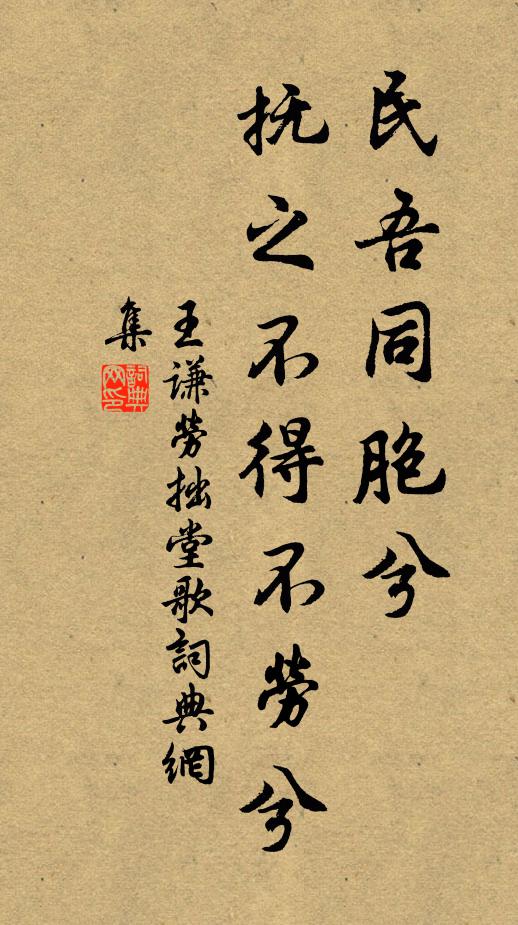 民吾同胞兮
抚之不得不劳兮
王谦劳拙堂歌詞典網
集
詞典
网印